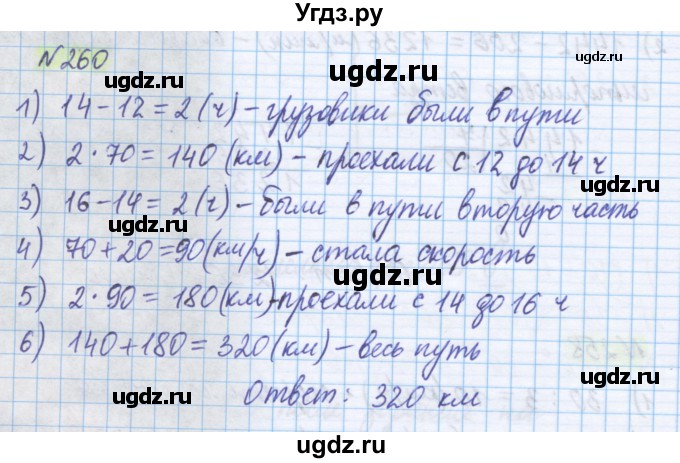 Угдз.ру
№ 260
1) 14 - 12 = 2 (ч) - грузовики были в пути
2) 2 · 70 = 140 (км) - проехали с 12 до 14 ч
3) 16 - 14 = 2 (ч) - были в пути вторую часть
4) 70 + 20 = 90 (км/ч) - стала скорость
5) 2 · 90 = 180 (км) - проехали с 14 до 16 ч
6) 140 + 180 = 320 (км) - весь путь
Ответ: 320 км
ugdz.ru
ugdz.ru
ugdz.ru
ugdz.ru
ugdz.ru
ugdz.ru
ugdz.ru
ugdz.ru
ugdz.ru
ugdz.ru
ugdz.ru
ugdz.ru